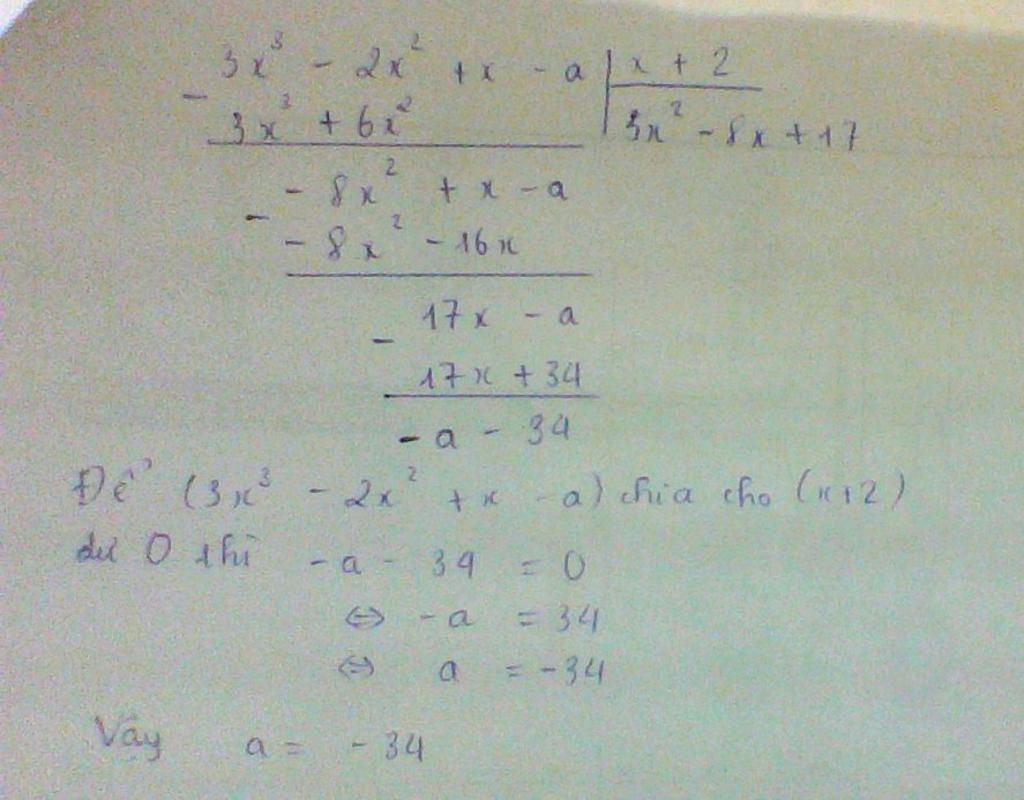 3x³ - 2x² + x - a | x + 2
- 3x³ + 6x² | 3x² - 8x + 17
- 8x² + x - a
- - 8x² - 16x
17x - a
- 17x + 34
- a - 34
Để (3x³ - 2x² + x - a) chia cho (x+2)
dư 0 thì -a - 34 = 0
⇔ -a = 34
⇔ a = -34
Vậy a = - 34